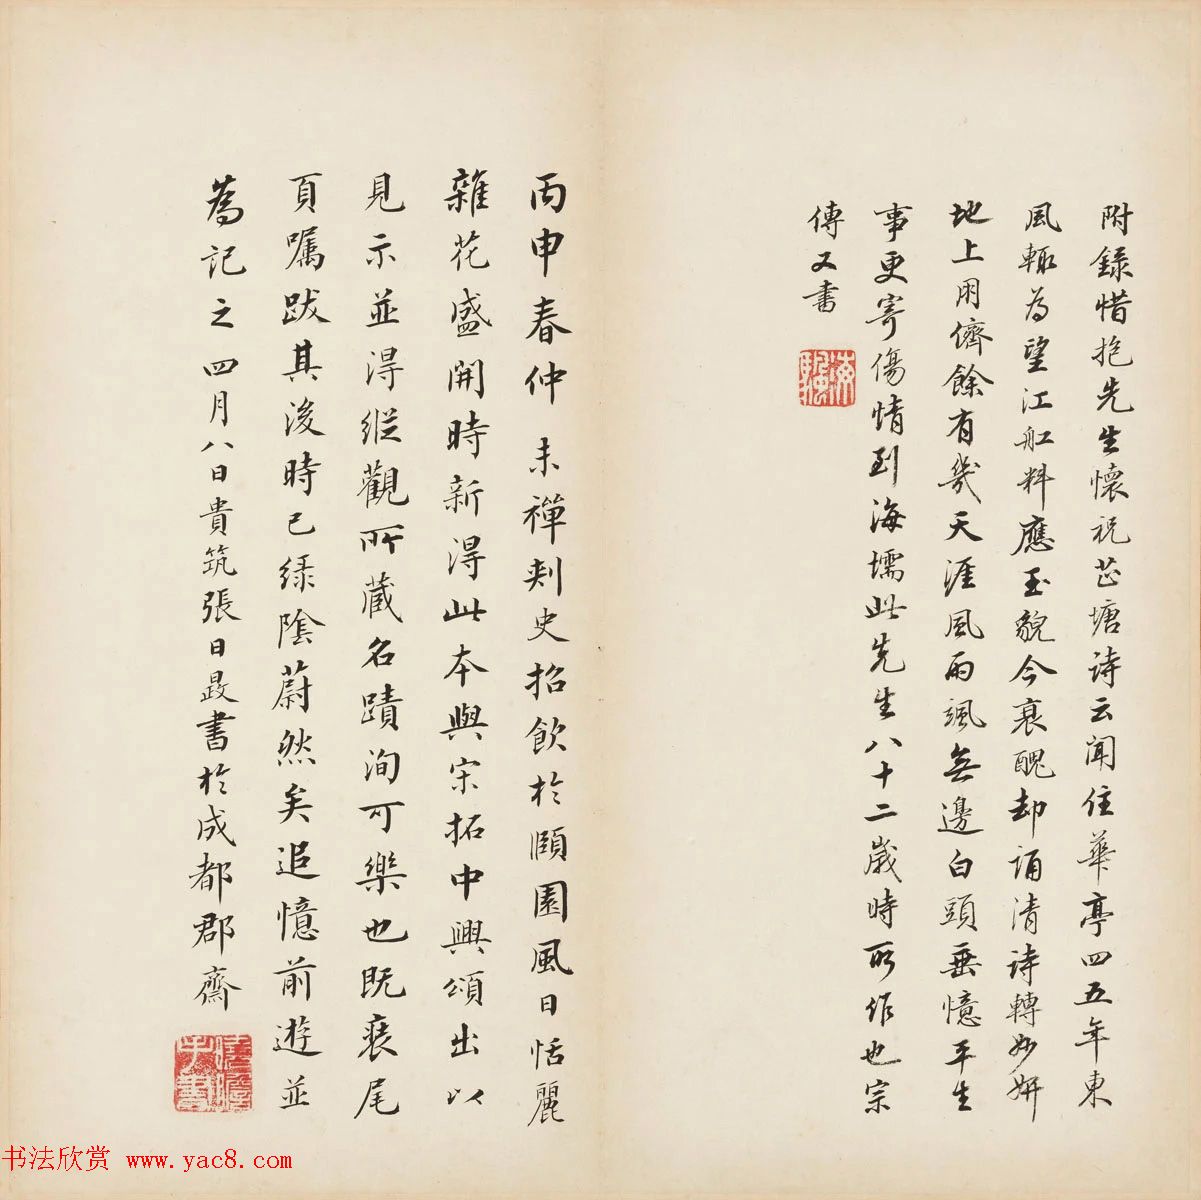 附錄惜抱先生懷祝芷塘詩云聞住華亭四五年東
風輙為望江舡料應玉貌今衰醜却誦清詩轉妙妍
地上用儕餘有幾天涯風雨颯無邊白頭垂憶平生
事更寄傷情到海壖此先生八十二歲時所作也宗
傅又書
丙申春仲未禪刾史招飲於頤園風日恬麗
雜花盛開時新得此本與宋拓中興頌出以
見示並得縱觀所藏名蹟洵可樂也既裝尾
頁囑跋其後時已綠陰蔚然矣追憶前遊並
為記之四月八日貴筑張日晸書於成都郡齋
书法欣赏 www.yac8.com